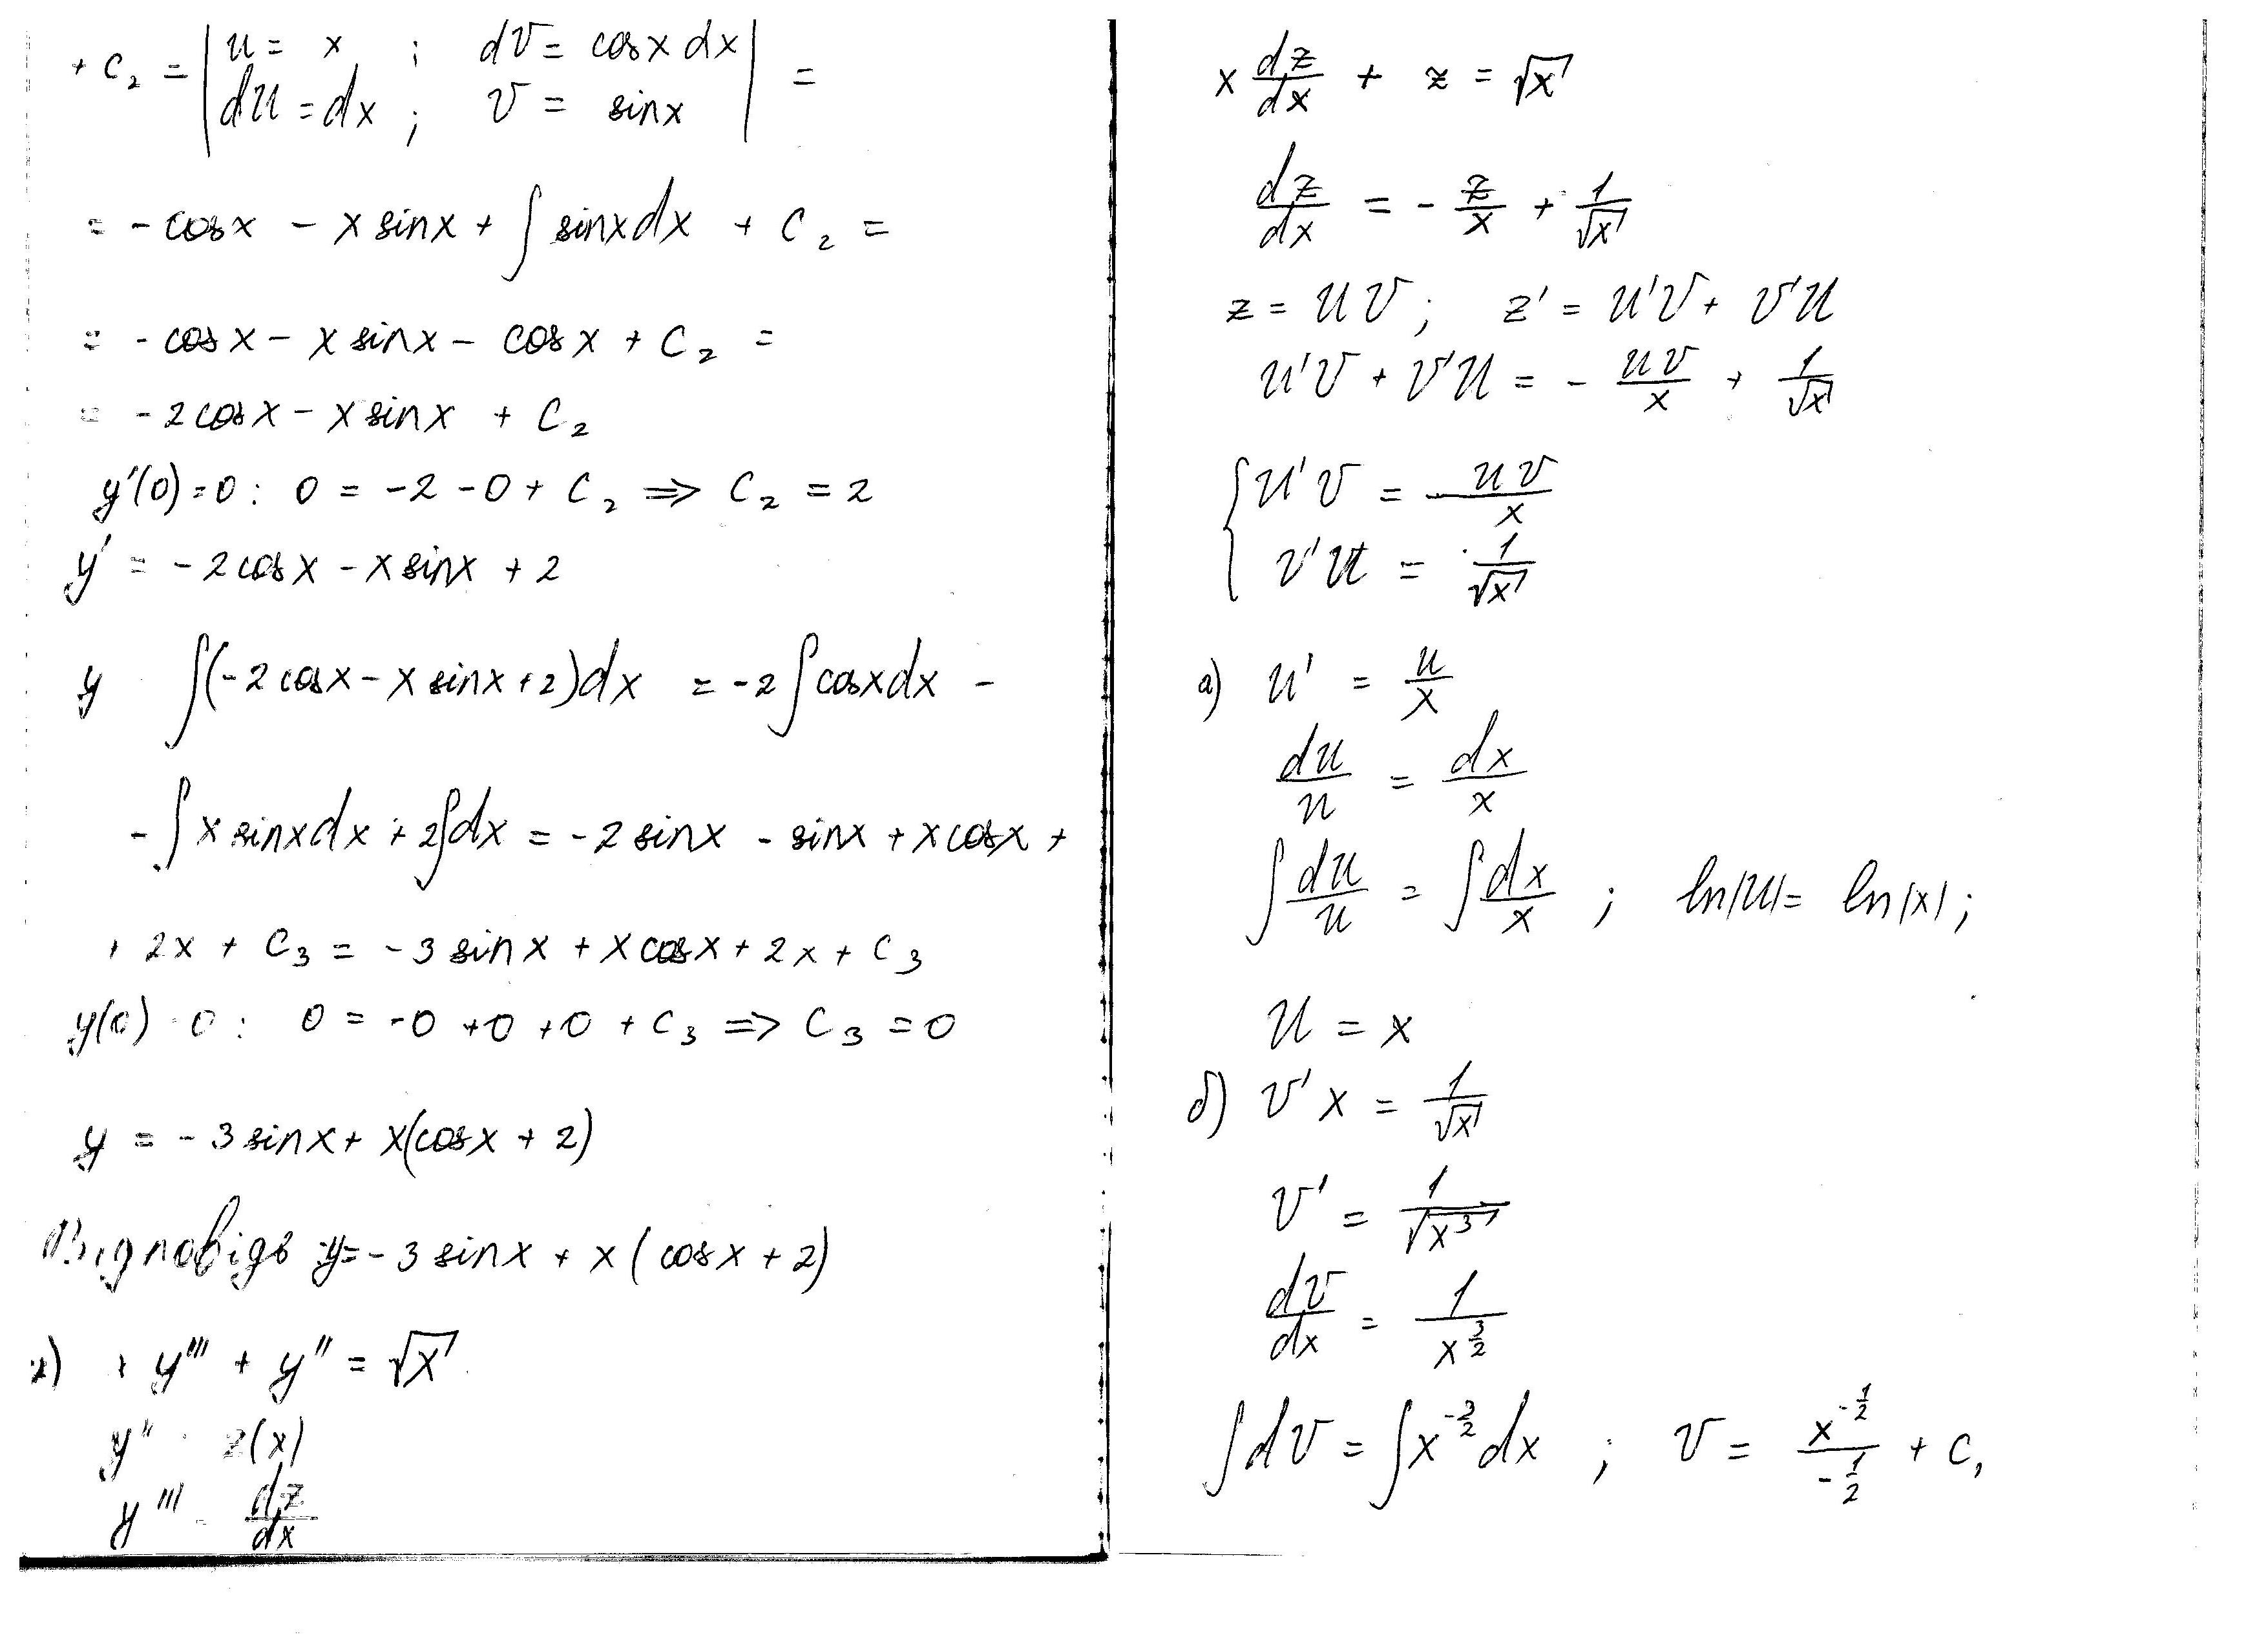 + C₂ = | u = x ; dv = cosx dx | =
| du = dx ; v = sinx |
= - cosx - x sinx + ∫ sinxdx + C₂ =
= - cosx - x sinx - cosx + C₂ =
= - 2cosx - x sinx + C₂
y'(0)=0 : 0 = -2 -0 + C₂ ⇒ C₂ = 2
y' = - 2cosx - x sinx + 2
y ∫(-2cosx - x sinx + 2)dx = -2∫cosxdx -
- ∫x sinxdx + 2∫dx = - 2 sinx - sinx + x cosx +
+ 2x + C₃ = - 3 sinx + x cosx + 2x + C₃
y(0) 0 : 0 = -0 +0 +0 + C₃ ⇒ C₃ = 0
y = - 3 sinx + x(cosx + 2)
Відповідь y = - 3 sinx + x (cosx + 2)
+ y''' + y'' = √x
y'' z(x)
y''' dz/dx
x dz/dx + z = √x
dz/dx = - z/x + 1/√x
z = uv ; z' = u'v + v'u
u'v + v'u = - uv/x + 1/√x
{ u'v = - uv/x
v'u = 1/√x
а) u' = u/x
du/u = dx/x
∫ du/u = ∫ dx/x ; ln|u| = ln|x| ;
u = x
б) v'x = 1/√x
v' = 1/√x³
dv/dx = 1/x^(3/2)
∫dv = ∫x^(-3/2) dx ; v = x^(-1/2)/(-1/2) + C₁